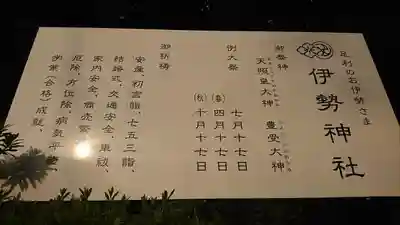 足利のお伊勢さま
伊勢神社
御祭神
天照皇大神　豊受大神
例大祭
七月十七日
（春）四月十七日
（秋）十月十七日
御祈祷
安産、初宮詣、七五三詣、
結婚式、交通安全、車祓、
家内安全、商売繁
厄除、方位除、病気平癒、
学業（合格）成就、